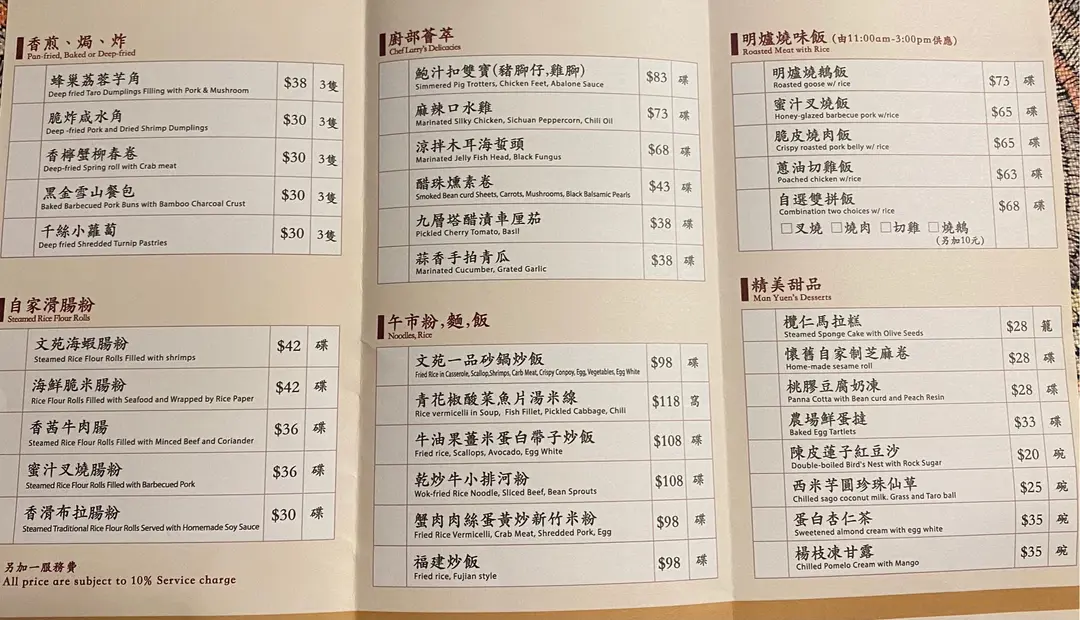 香煎、焗、炸
Pan-fried, Baked or Deep-fried
蜂巢荔蓉芋角 $38 3隻
Deep fried Taro Dumplings Filling with Pork & Mushroom
脆炸咸水角 $30 3隻
Deep -fried Pork and Dried Shrimp Dumplings
香檸蟹柳春卷 $30 3隻
Deep-fried Spring roll with Crab meat
黑金雪山餐包 $30 3隻
Baked Barbecued Pork Buns with Bamboo Charcoal Crust
千絲小蘿蔔 $30 3隻
Deep fried Shredded Turnip Pastries
自家滑腸粉
Steamed Rice Flour Rolls
文苑海蝦腸粉 $42 碟
Steamed Rice Flour Rolls Filled with shrimps
海鮮脆米腸粉 $42 碟
Rice Flour Rolls Filled with Seafood and Wrapped by Rice Paper
香茜牛肉腸 $36 碟
Steamed Rice Flour Rolls Filled with Minced Beef and Coriander
蜜汁叉燒腸粉 $36 碟
Steamed Rice Flour Rolls Filled with Barbecued Pork
香滑布拉腸粉 $30 碟
Steamed Traditional Rice Flour Rolls Served with Homemade Soy Sauce
另加一服務費
All price are subject to 10% Service charge
廚部薈萃
Chef Larry's Delicacies
鮑汁扣雙寶(豬腳仔,雞腳) $83 碟
Simmered Pig Trotters, Chicken Feet, Abalone Sauce
麻辣口水雞 $73 碟
Marinated Silky Chicken, Sichuan Peppercorn, Chili Oil
涼拌木耳海蜇頭 $68 碟
Marinated Jelly Fish Head, Black Fungus
醋珠燻素卷 $43 碟
Smoked Bean curd Sheets, Carrots, Mushrooms, Black Balsamic Pearls
九層塔醋漬車厘茄 $38 碟
Pickled Cherry Tomato, Basil
蒜香手拍青瓜 $38 碟
Marinated Cucumber, Grated Garlic
午市粉,麵,飯
Noodles, Rice
文苑一品砂鍋炒飯 $98 碟
Fried Rice in Casserole, Scallop,Shrimps, Carb Meat, Crispy Conpoy, Egg, Vegetables, Egg White
青花椒酸菜魚片湯米線 $118 窩
Rice vermicelli in Soup, Fish Fillet, Pickled Cabbage, Chili
牛油果薑米蛋白帶子炒飯 $108 碟
Fried rice, Scallops, Avocado, Egg White
乾炒牛小排河粉 $108 碟
Wok-fried Rice Noodle, Sliced Beef, Bean Sprouts
蟹肉肉絲蛋黃炒新竹米粉 $98 碟
Fried Rice Vermicelli, Crab Meat, Shredded Pork, Egg
福建炒飯 $98 碟
Fried rice, Fujian style
明爐燒味飯 (由11:00am-3:00pm供應)
Roasted Meat with Rice
明爐燒鵝飯 $73 碟
Roasted goose w/ rice
蜜汁叉燒飯 $65 碟
Honey-glazed barbecue pork w/rice
脆皮燒肉飯 $65 碟
Crispy roasted pork belly w/ rice
蔥油切雞飯 $63 碟
Poached chicken w/rice
自選雙拼飯 $68 碟
Combination two choices w/ rice
□叉燒 □燒肉 □切雞 □燒鵝
(另加10元)
精美甜品
Man Yuen's Desserts
欖仁馬拉糕 $28 籠
Steamed Sponge Cake with Olive Seeds
懷舊自家制芝麻卷 $28 碟
Home-made sesame roll
桃膠豆腐奶凍 $28 碟
Panna Cotta with Bean curd and Peach Resin
農場鮮蛋撻 $33 碟
Baked Egg Tartlets
陳皮蓮子紅豆沙 $20 碗
Double-boiled Bird's Nest with Rock Sugar
西米芋圓珍珠仙草 $25 碗
Chilled sago coconut milk. Grass and Taro ball
蛋白杏仁茶 $35 碗
Sweetened almond cream with egg white
楊枝凍甘露 $35 碗
Chilled Pomelo Cream with Mango